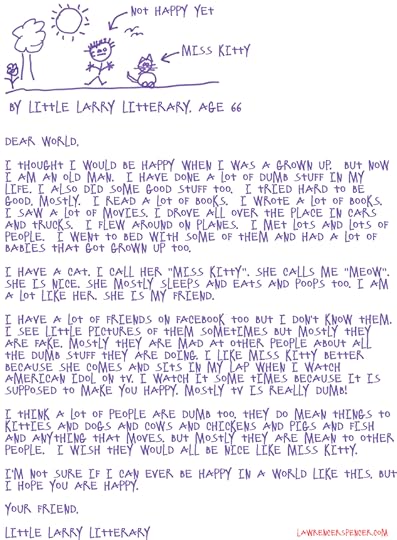 NOT HAPPY YET
MISS KITTY
BY LITTLE LARRY LITTERARY, AGE 66
DEAR WORLD,
I THOUGHT I WOULD BE HAPPY WHEN I WAS A GROWN UP. BUT NOW
I AM AN OLD MAN. I HAVE DONE A LOT OF DUMB STUFF IN MY
LIFE. I ALSO DID SOME GOOD STUFF TOO. I TRIED HARD TO BE
GOOD, MOSTLY. I READ A LOT OF BOOKS. I WROTE A LOT OF BOOKS.
I SAW A LOT OF MOVIES. I DROVE ALL OVER THE PLACE IN CARS
AND TRUCKS. I FLEW AROUND ON PLANES. I MET LOTS AND LOTS OF
PEOPLE. I WENT TO BED WITH SOME OF THEM AND HAD A LOT OF
BABIES THAT GOT GROWN UP TOO.
I HAVE A CAT. I CALL HER "MISS KITTY". SHE CALLS ME "MEOW".
SHE IS NICE. SHE MOSTLY SLEEPS AND EATS AND POOPS TOO. I AM
A LOT LIKE HER. SHE IS MY FRIEND.
I HAVE A LOT OF FRIENDS ON FACEBOOK TOO BUT I DON'T KNOW THEM.
I SEE LITTLE PICTURES OF THEM SOMETIMES BUT MOSTLY THEY
ARE FAKE. MOSTLY THEY ARE MAD AT OTHER PEOPLE ABOUT ALL
THE DUMB STUFF THEY ARE DOING. I LIKE MISS KITTY BETTER
BECAUSE SHE COMES AND SITS IN MY LAP WHEN I WATCH
AMERICAN IDOL ON TV. I WATCH IT SOME TIMES BECAUSE IT IS
SUPPOSED TO MAKE YOU HAPPY. MOSTLY TV IS REALLY DUMB!
I THINK A LOT OF PEOPLE ARE DUMB TOO. THEY DO MEAN THINGS TO
KITTIES AND DOGS AND COWS AND CHICKENS AND PIGS AND FISH
AND ANYTHING THAT MOVES. BUT MOSTLY THEY ARE MEAN TO OTHER
PEOPLE. I WISH THEY WOULD ALL BE NICE LIKE MISS KITTY.
I'M NOT SURE IF I CAN EVER BE HAPPY IN A WORLD LIKE THIS, BUT
I HOPE YOU ARE HAPPY.
YOUR FRIEND,
LITTLE LARRY LITTERARY
LAWRENCERSPENCER.COM